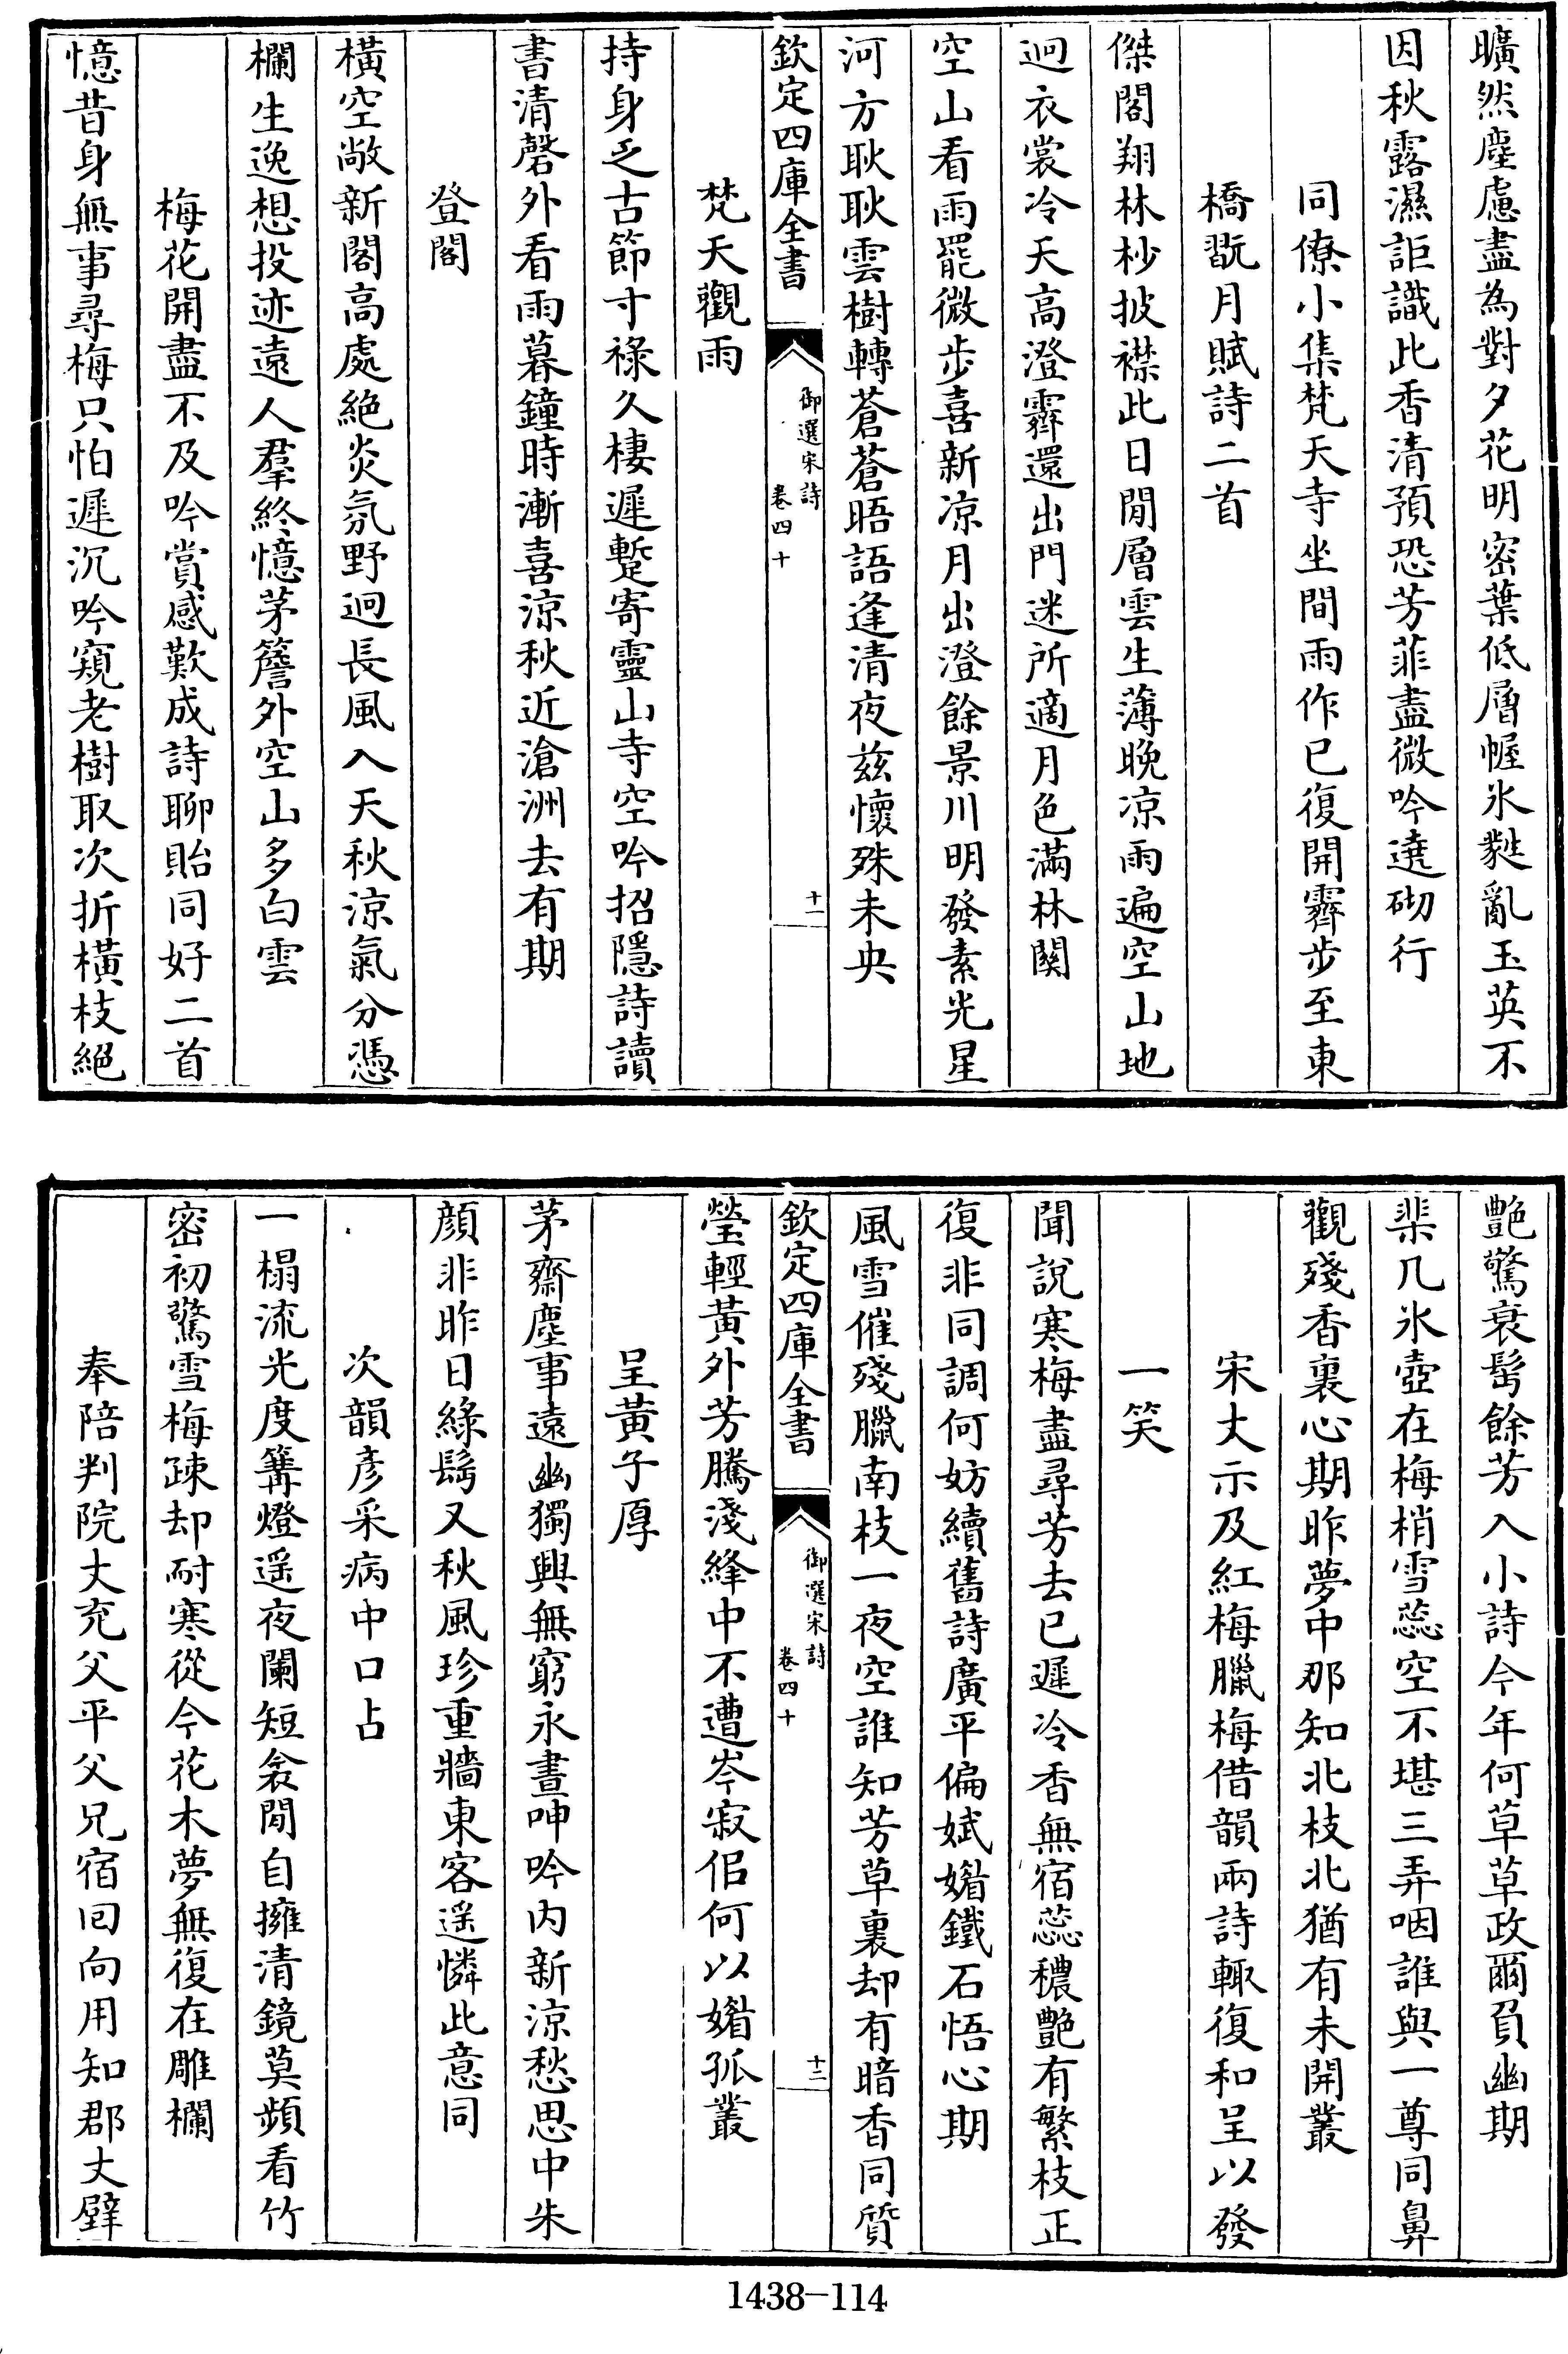 曠然塵慮盡為對夕花明密葉低層幄氷㽔亂玉英不
因秋露濕詎識此香清預恐芳菲盡微吟遶砌行
同僚小集梵天寺坐間雨作已復開霽步至東
橋翫月賦詩二首
傑閣翔林杪披襟此日閒層雲生薄晚凉雨遍空山地
迥衣裳冷天高澄霽還出門迷所適月色滿林關
空山看雨罷微步喜新凉月出澄餘景川明發素光星
河方耿耿雲樹轉蒼蒼晤語逢清夜兹懷殊未央
欽定四庫全書
御選宋詩
卷四十
十一
梵天觀雨
持身乏古節寸祿久棲遲蹔寄靈山寺空吟招隱詩讀
書清磬外看雨暮鐘時漸喜涼秋近滄洲去有期
登閣
橫空敞新閣高處絶炎氛野迥長風入天秋涼氣分憑
欄生逸想投迹遠人羣終憶茅簷外空山多白雲
梅花開盡不及吟賞感歎成詩聊貽同好二首
憶昔身無事尋梅只怕遲沉吟窺老樹取次折橫枝絕
艷驚衰髩餘芳入小詩今年何草草政爾負幽期
棐几氷壺在梅梢雪蕊空不堪三弄咽誰與一尊同鼻
觀殘香裏心期昨夢中那知北枝北猶有未開叢
宋丈示及紅梅臘梅借韻兩詩輙復和呈以發
一笑
聞說寒梅盡尋芳去已遲冷香無宿蕊穠艷有繁枝正
復非同調何妨續舊詩廣平偏娬媚鐵石悟心期
風雪催殘臘南枝一夜空誰知芳草裏却有暗香同質
欽定四庫全書
御選宋詩
卷四十
十二
瑩輕黃外芳騰淺絳中不遭岑寂侶何以媚孤叢
呈黃子厚
茅齋塵事遠幽獨興無窮永晝呻吟内新涼愁思中朱
顔非昨日綠髩又秋風珍重牆東客遥憐此意同
次韻彦采病中口占
一榻流光度篝燈遥夜闌短衾閒自擁清鏡莫頻看竹
密初驚雪梅疎却耐寒從今花木夢無復在雕欄
奉陪判院丈充父平父兄宿回向用知郡丈壁
1438-114